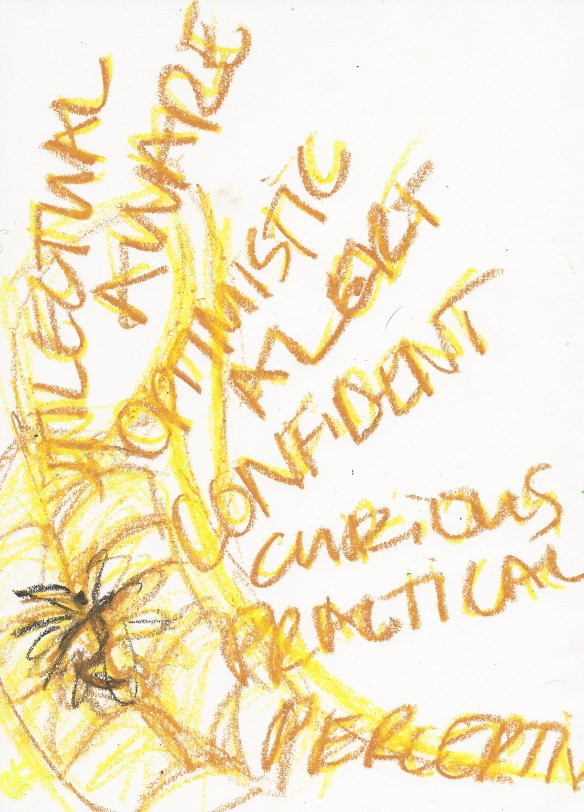 INTLECTUAL
AWARE
OPTIMISTIC
ALERT
CONFIDENT
CURIOUS
PRACTICAL
PERCEPTIV